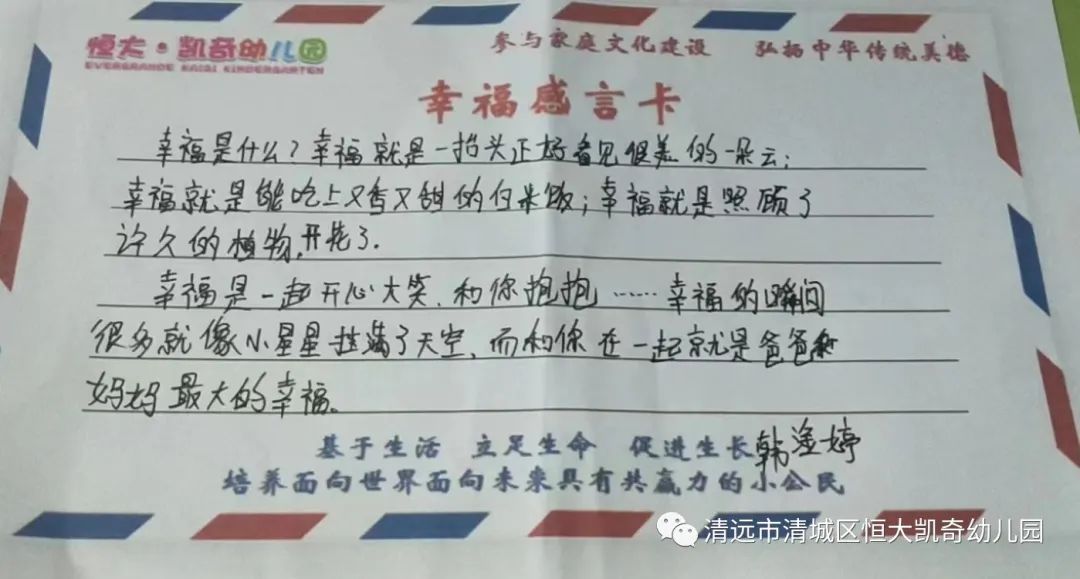 恒大·凯奇幼儿园
EVERGRANDE KAIQI KINDERGARTEN
参与家庭文化建设 弘扬中华传统美德
幸福感言卡
幸福是什么？幸福就是一抬头正好看见很美的一朵云；
幸福就是能吃上又香又甜的白米饭；幸福就是照顾了
许久的植物，开花了.
幸福是一起开心大笑，和你抱抱……幸福的瞬间
很多就像小星星挂满了天空，而和你在一起就是爸爸和
妈妈最大的幸福。
基于生活 立足生命 促进生长
韩 婷
培养面向世界面向未来具有共赢力的小公民
清远市清城区恒大凯奇幼儿园